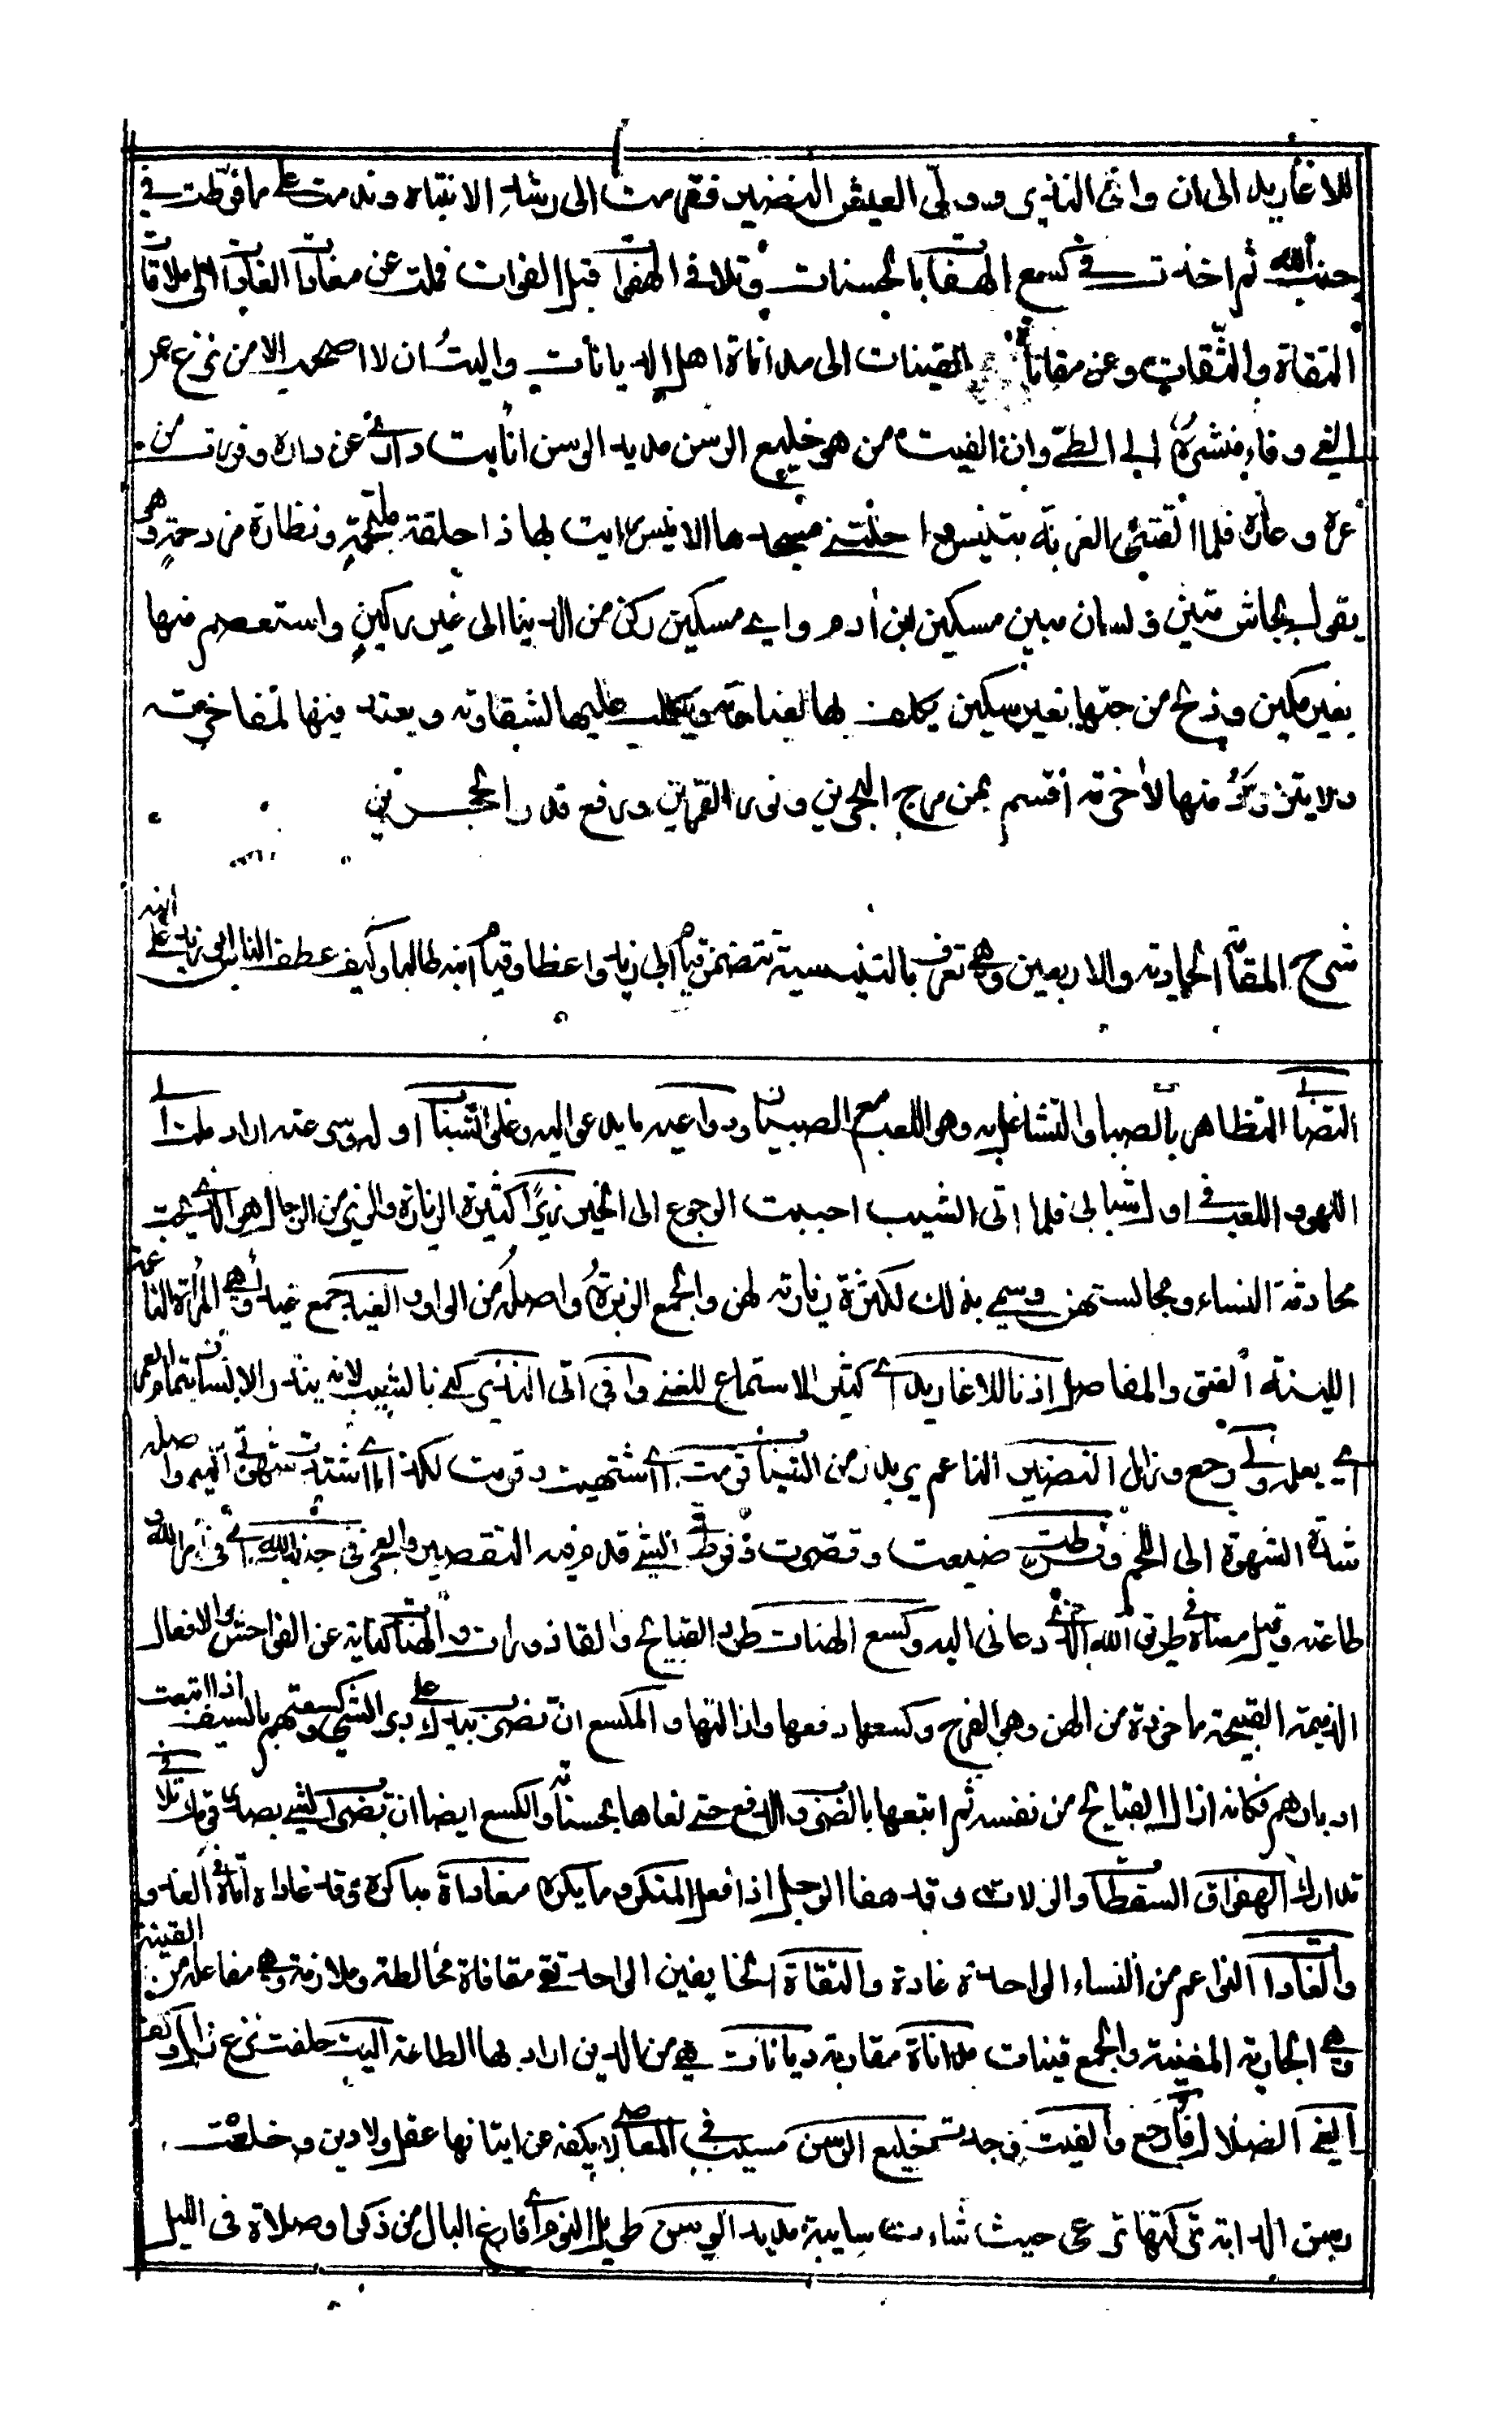 للاغاريد الى ان وافى النذير وولى العيش النضير فقرمت الى رشد الانتباه وندمت على ما فرطت في
جنب الله ثم اخذت في كسع الهنات بالحسنات وتلافي الهفوات قبل الفوات فملت عن مغادات الغادات الى ملاقات
التقاة والثقات وعن مقانات القينات الى مداناة اهل الديانات واليت ان لا اصحب الا من نزع عن
الغي وفاء منشره الى الطي وان الفيت من هو خليع الرسن مديد الوسن انايت داري عن داره وفررت من
عره وعاره فلما القتني الغربة بتنيس واحلتني مسجدها الانيس رايت بها ذا حلقة ملتحمة ونظارة مزدحمة وهو
يقول بجاش متين ولسان مبين مسكين ابن آدم واي مسكين ركن من الدنيا الى غير ركين واستعصم منها
بغير مكين وذبح من حبها بغير سكين يكلف بها لغباوته ويكلب عليها لشقاوته ويعتد فيها لمفاخرته
ولا يتزود منها لآخرته أقسم بمن مرج البحرين ونور القمرين ورفع قدر الحجرين
شرح المقامة الحادية والاربعين وهي تعرف بالتنيسية تتضمن قيام ابي زيد واعظا وقيام ابنه طالبا وكيف عطف الناس ابو زيد على ابنه
التصابي التظاهر بالصبا والتشاغل به وهو اللعب مع الصبيان ودواعيه ما يدعو اليه وغلواء الشباب اوله وسى عنه اراد ملت الى
اللهو واللعب في اول شبابي فلما اتى الشيب احببت الرجوع الى الخير زيرا كثيرة الزيارة والزير من الرجال هو الذي يحب
محادثة النساء ومجالستهن وسمي بذلك لكثرة زيارته لهن والجمع الزيرة واصله من الواو الغيد جمع غيداء وهي المرأة الناعمة
اللينة العنق والمفاصل اذنا للاغاريد اي كثير الاستماع للغنى وافى اتى النذير كنى بالشيب لانه ينذر الانسان بتمام العمر
اي يعلمه ولى رجع وزال النضير الناعم يريد زمن الشباب قرمت اي اشتهيت وقرمت لكذا اي اشتدت شهوتي اليه واصله
شدة الشهوة الى اللحم فرطت ضيعت وقصرت وفرط في الشيء قدم فيه التقصير والعجز في جنب الله اي في امر الله و
طاعته وقيل معناه في طريق الله الذي دعاني اليه وكسع الهنات طرد القبايح والقاذورات والهنات كناية عن الفواحش والافعال
الذميمة القبيحة ماخوذة من الهن وهي الفرج وكسعها دفعها وازالتها والكسع ان تضرب بيدك على دبر الشيء وكسعتهم بالسيف اذا اتبعت
ادبارهم فكانه ازال القبايح من نفسه ثم اتبعها بالضرب والدفع حتى نفاها بحسناته والكسع ايضا ان تضرب الشيء بصدر قدمك تلافي
تدارك الهفوات السقطات والزلات وقد هفا الرجل اذا فعل المنكر وما يكره مغاداة مباكرة وقد غاداه اتاه في الغدو
والغادات النواعم من النساء الواحدة غادة والتقاة الخايفين الواحد تقي مقاناة مخالطة وملازمة وهي مفاعلة من القينة
وهي الجارية المغنية والجمع قينات مداناة مقاربة ديانات هي من الدين اراد بها الطاعة اليت حلفت نزع زال وكف
الغي الضلال فاء رجع والفيت وجدت خليع الرسن مسيب في المعاصي لا يكفه عن اتيانها عقل ولا دين وخلعت
رسن الدابة تركتها ترعى حيث شاءت سايبة مديد الوسن طويل النوم اي فارغ البال من ذكر وصلاة في الليل